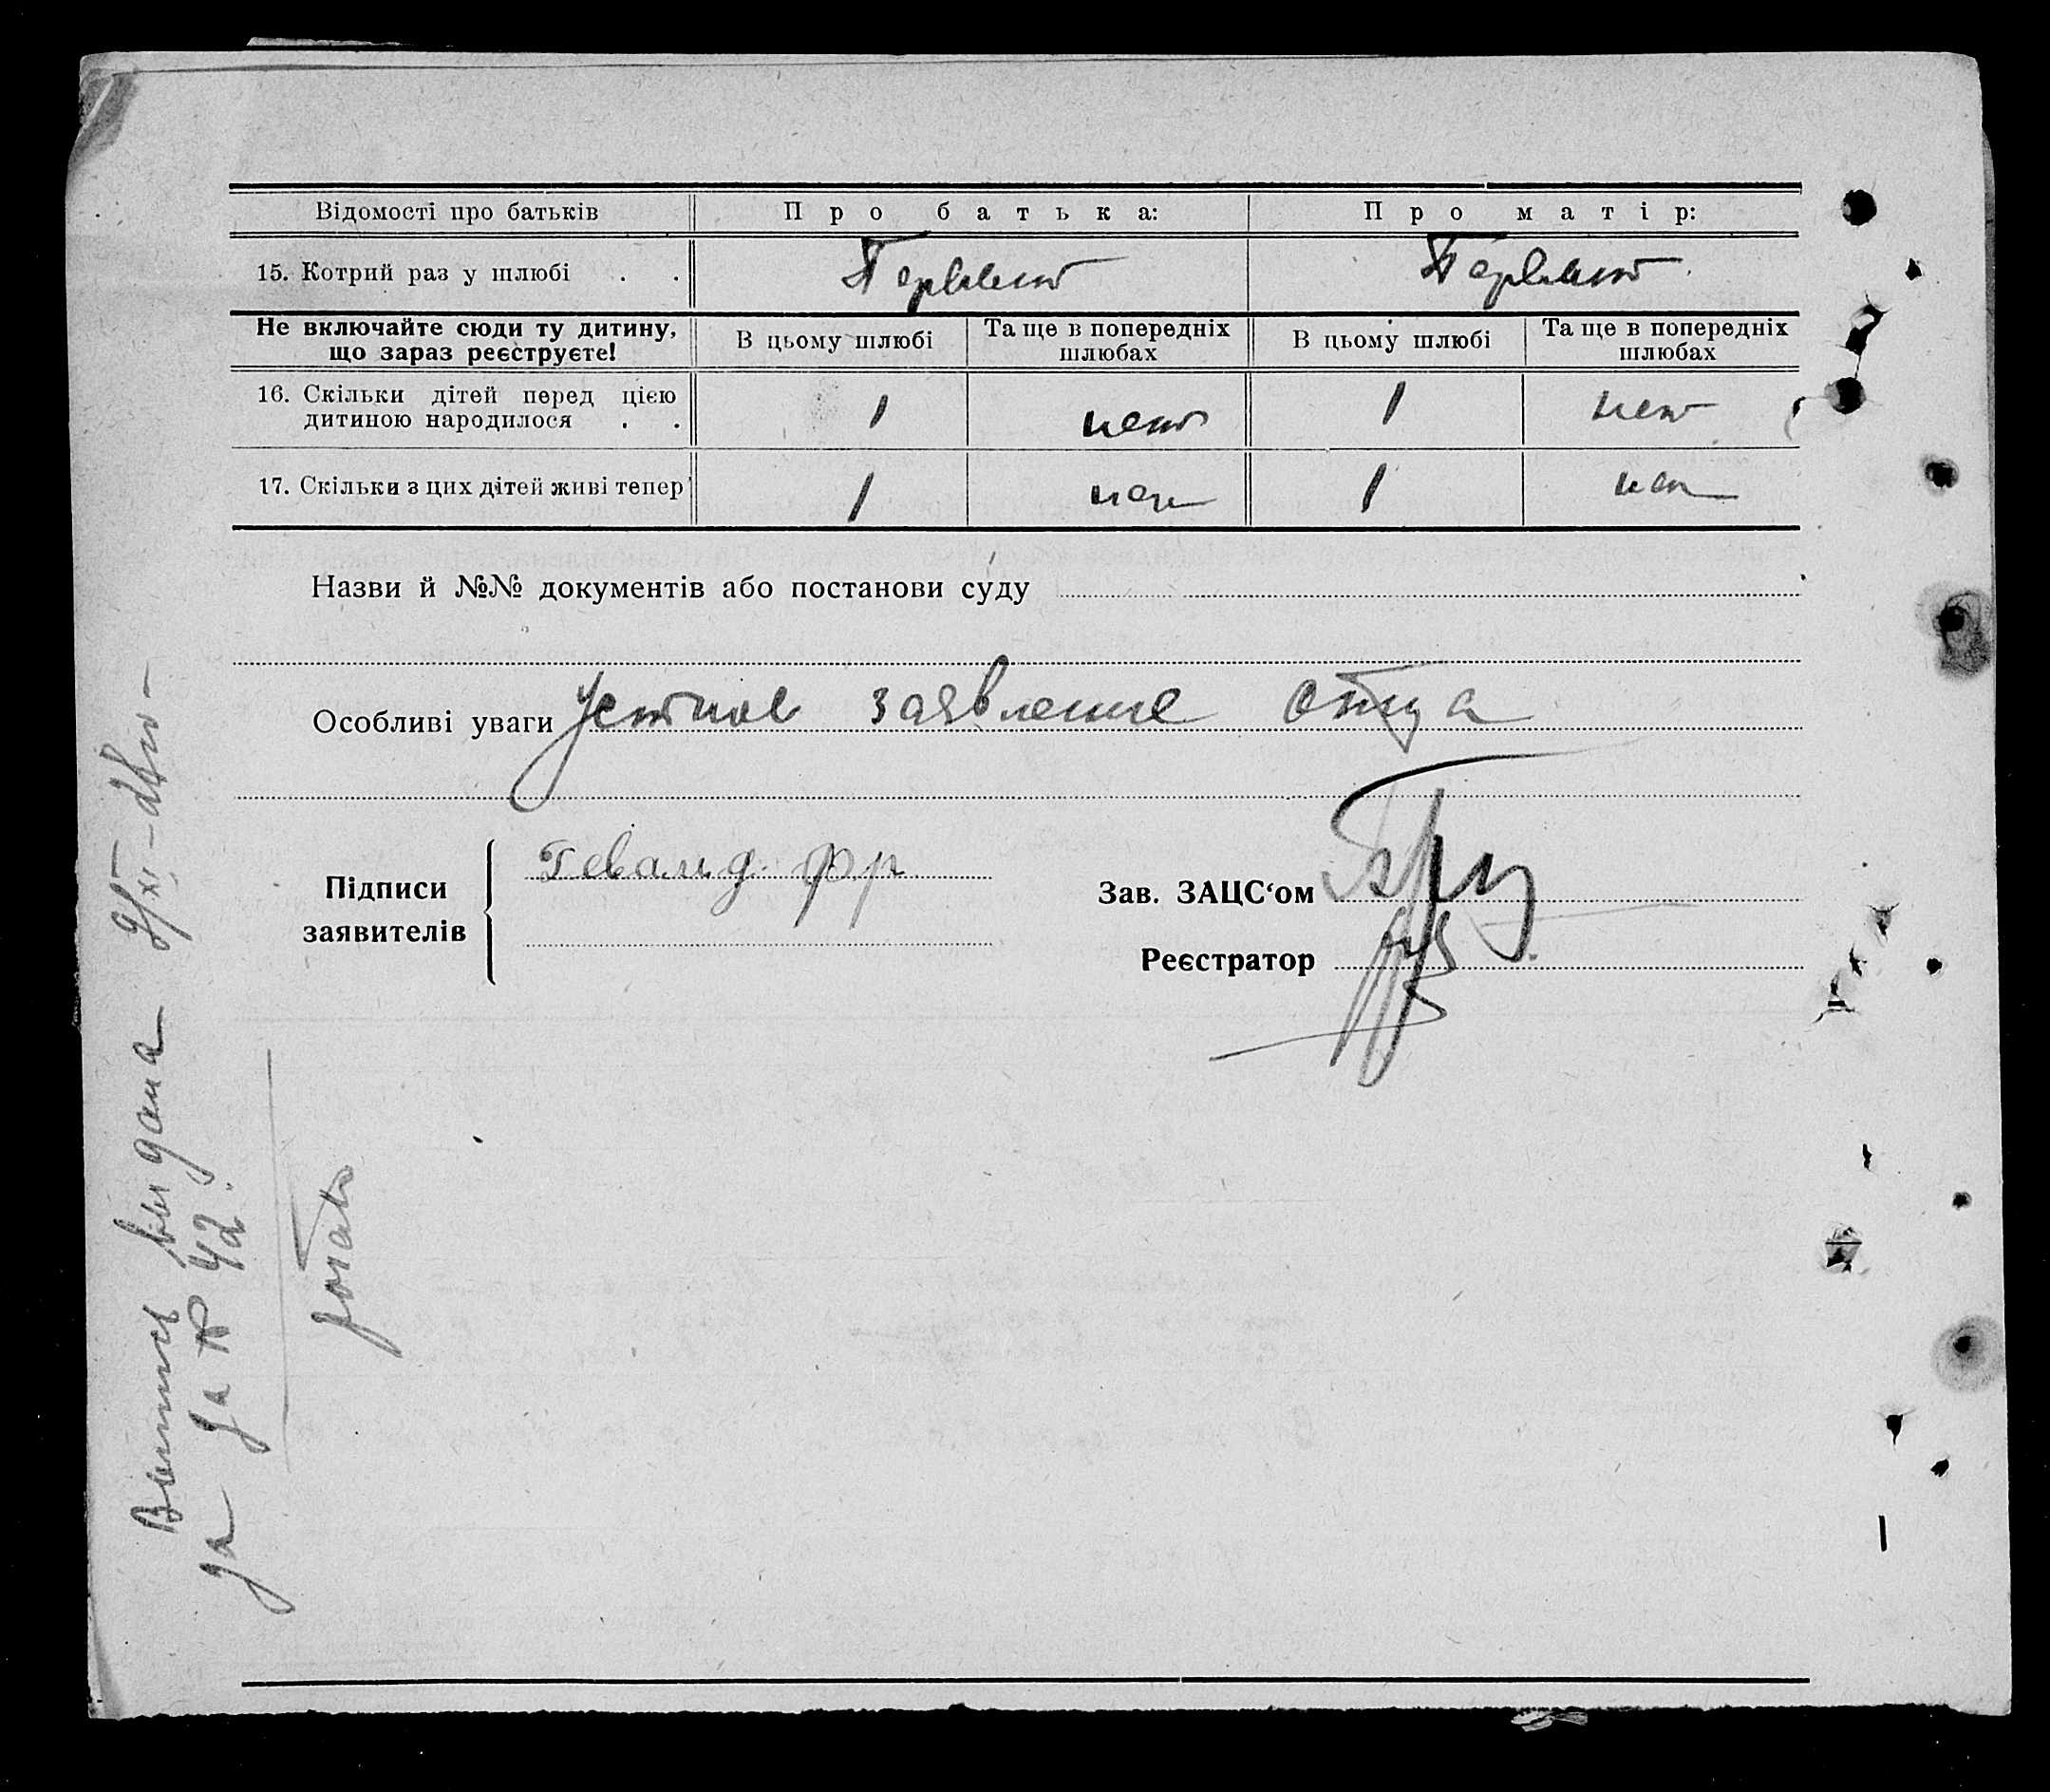 Відомості про батьків
Про батька:
Про матір:
15. Котрий раз у шлюбі . .
Первый
Первый
Не включайте сюди ту дитину,
що зараз реєструєте!
В цьому шлюбі
Та ще в попередніх
шлюбах
В цьому шлюбі
Та ще в попередніх
шлюбах
16. Скільки дітей перед цією
дитиною народилося . .
1
нет
1
нет
17. Скільки з цих дітей живі тепер
1
нет
1
нет
Назви й №№ документів або постанови суду
Особливі уваги Устное заявление отца
Підписи
заявителів
Гевалид фр
Зав. ЗАЦС‘ом
Реєстратор
Выпись выдана
за № 42